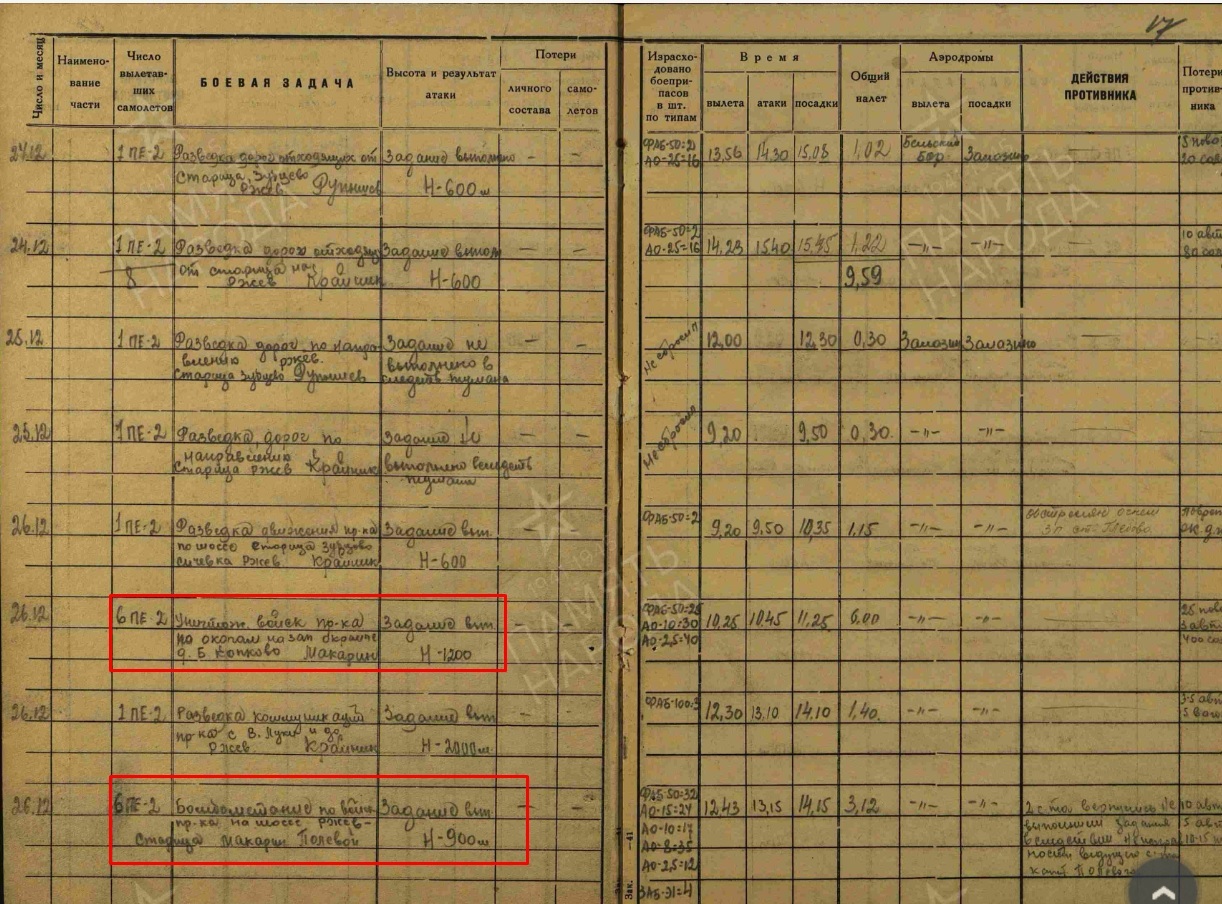 17
Число и месяц
Наимено-
вание
части
Число
вылетав-
ших
самолетов
БОЕВАЯ ЗАДАЧА
Высота и результат
атаки
Потери
личного
состава
само-
летов
Израсхо-
довано
боепри-
пасов
в шт.
по типам
Время
вылета
атаки
посадки
Общий
налет
Аэродромы
вылета
посадки
ДЕЙСТВИЯ
ПРОТИВНИКА
Потери
против-
ника
24.12 1 ПЕ-2 Разведка дорог отходящих от Задание выполнено — — ФАБ-50=2 13,56 14.30 15.08 1,02 Бельский Залазино
Старица, Зубцово АО-25=16 бор.
Ржев Н-600м
24.12 1 ПЕ-2 Разведка дорог отходящ Задание выпол — — ФАБ-50=2 14,23 15.40 15.45 1,22 —"— —"—
8 от старица на АО-25=16
Ржев Крайник Н-600 9,59
25.12 1 ПЕ-2 Разведка дорог по напра Задание не — — Не сбросил 12,00 12,30 0,30 Залазин Залазино
влению Ржев. выполнено в
Старица зубцово следств тумана
25.12 1 ПЕ-2 Разведка дорог по Задание не — — Не сбросил 9,20 9,50 0,30 —"— —"—
направлению выполнено вследств
Старица Ржев Крайник тумана
26.12 1 ПЕ-2 Разведка движения пр-ка Задание вып. — — ФАБ-50=2 9,20 9,50 10,35 1,15 —"— —"— обстрелян огнем
по шоссе старица зубцово
сичевка Ржев Крайник Н-600
26.12 6 ПЕ-2 Уничтож. войск пр-ка Задание вып. — — ФАБ-50=28 10,25 10.45 11,25 6.00 —"— —"—
по окопам на зап окраине АО-10=30
д. Б Копково Макарин Н-1200 АО-2,5=40
26.12 1 ПЕ-2 Разведка коммуникаций Задание вып — — ФАБ-100=3 12,30 13,10 14.10 1,40. —"— —"—
пр-ка с В. Луки и до
Ржев. Крайник Н-2000м.
26.12 6 ПЕ-2 Бомбометание по войск Задание вып — — ФАБ-50=32 12,43 13,15 14,15 3,12 —"— —"— 2 с-та вернулись не 10 авт
пр-ка на шоссе Ржев- АО-15=24 выполнив задания 5 авт
Старица Макарин Полевой Н-900м АО-10=17 вследствии
АО-8=35
АО-2,5=12
ЗАБ-31=4
Зак. —41
ПАМЯТЬ
НАРОДА
ПАМЯТЬ
НАРОДА
ПАМЯТЬ
НАРОДА